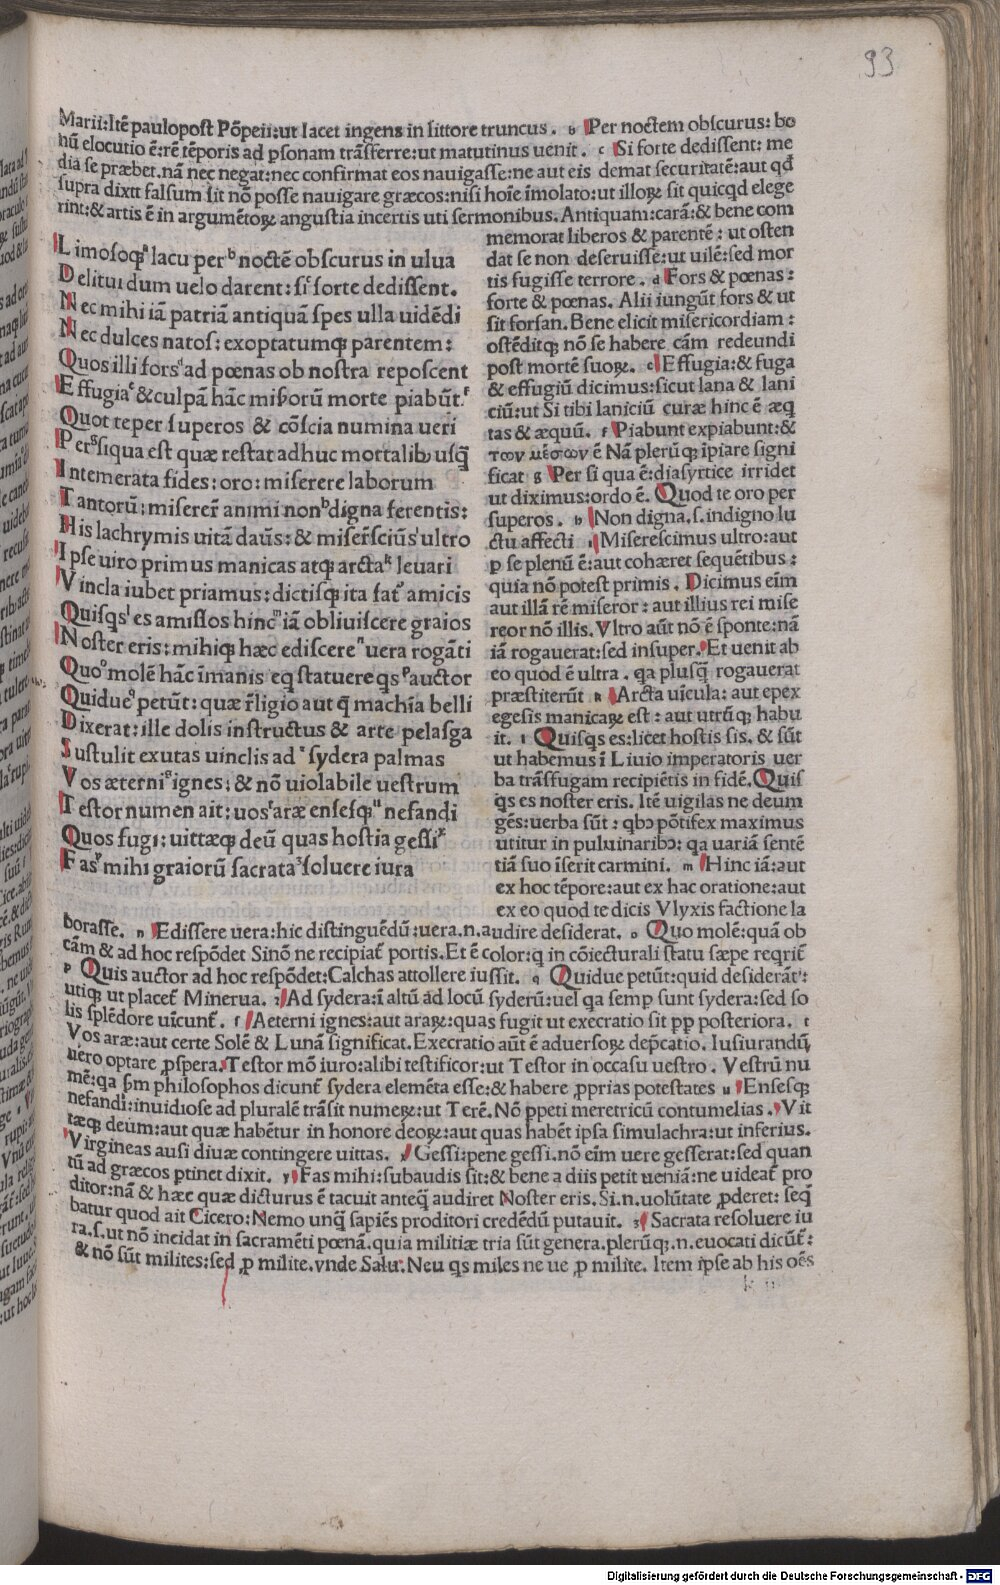 93
Marii:Itē paulopost Pōpeii:ut Iacet ingens in littore truncus. b Per noctem obscurus: bo
nū elocutio ē:rē tēporis ad ꝑsonam trāsferre:ut matutinus uenit. c Si forte dedissent: me
dia se præbet.nā nec negat:nec confirmat eos nauigasse:ne aut eis demat securitatē:aut qđ
supra dixtt falsum sit nō posse nauigare græcos:nisi hoīe īmolato:ut illoꝝ sit quicqd elege
rint:& artis ē in argumētoꝝ angustia incertis uti sermonibus. Antiquam:carā:& bene com
Limosoqꝫ a lacu per b noctē obscurus in ulua
Delitui dum uelo darent: si c forte dedissent.
Nec mihi iā patriā antiquā spes ulla uidēdi
Nec dulces natos: exoptatumqꝫ parentem:
Quos illi fors d ad pœnas ob nostra reposcent
Effugia e & culpā hāc miꝭorū morte piabūt. f
Quot te per superos & cōscia numina ueri
Per g siqua est quæ restat adhuc mortalibꝰ usq̄
Intemerata fides: oro: miserere laborum
Tantorū; miserer̄ animi non h digna ferentis:
His lachrymis uitā daūs: & miser̄sciūs i ultro
Ipse uiro primus manicas atqꝫ arcta k leuari
Vincla iubet priamus: dictisqꝫ ita fat᷑ amicis
Quisqs l es amissos hinc m iā obliuiscere graios
Noster eris: mihiqꝫ hæc ediscere n uera rogāti
Quo o molē hāc īmanis eq̨ statuere qs p auctor
Quidue q petūt: quæ r̄ligio aut q̄ machīa belli
Dixerat: ille dolis instructus & arte pelasga
Sustulit exutas uinclis ad r sydera palmas
Vos æterni s ignes; & nō uiolabile uestrum
Testor numen ait; uos t aræ ensesqꝫ u nefandi
Quos fugi: uittæqꝫ deū quas hostia gessi x
Fas y mihi graiorū sacrata z soluere iura
memorat liberos & parentē: ut osten
dat se non deseruisse:ut uilē:sed mor
tis fugisse terrore. d Fors & pœnas:
forte & pœnas. Alii iungūt fors & ut
sit forsan. Bene elicit misericordiam:
ostēditqꝫ nō se habere cām redeundi
post mortē suoꝝ. e Effugia:& fuga
& effugiū dicimus:sicut lana & lani
ciū:ut Si tibi laniciū curæ hinc ē æq̨
tas & æquū. f Piabunt expiabunt:&
των μέσων ē Nā plerūqꝫ ipiare signi
ficat g Per si qua ē:diasyrtice irridet
ut diximus:ordo ē. Quod te oro per
superos. h Non digna.s.indigno lu
ctu affecti i Miserescimus ultro:aut
ꝑ se plenū ē:aut cohæret sequētibus:
quia nō potest primis. Dicimus eīm
aut illā rē miseror: aut illius rei mise
reor nō illis. Vltro aūt nō ē sponte:nā
iā rogauerat:sed insuper. Et uenit ab
eo quod ē ultra. qa plusq̄ rogauerat
præstiterūt k Arcta uīcula: aut epex
egesis manicaꝝ est: aut utrūqꝫ habu
it. l Quisqs es:licet hostis sis. & sūt
ut habemus ī Liuio imperatoris uer
ba trāsfugam recipiētis in fidē. Quis
qs es noster eris. Itē uigilas ne deum
gēs:uerba sūt: qbꝰ pōtifex maximus
utitur in puluinaribꝰ: qa uariā sentē
tiā suo īserit carmini. m Hinc iā:aut
ex hoc tēpore:aut ex hac oratione:aut
ex eo quod te dicis Vlyxis factione la
borasse. n Edissere uera:hic distinguēdū:uera.n.audire desiderat. o Quo molē:quā ob
cām & ad hoc respōdet Sinō ne recipiat᷑ portis. Et ē color:q̨ in cōiecturali statu sæpe reqrit᷑
p Quis auctor ad hoc respōdet:Calchas attollere iussit. q Quidue petūt:quid desiderāt:
utiqꝫ ut placet᷑ Minerua. r Ad sydera:ī altū ad locū syderū:uel qa semꝑ sunt sydera:sed so
lis splēdore uīcunt᷑. s Aeterni ignes:aut araꝝ:quas fugit ut execratio sit ꝑꝑ posteriora. t
Vos aræ:aut certe Solē & Lunā significat. Execratio aūt ē aduersoꝝ deꝑcatio. Iusiurandū
uero optare ꝓspera. Testor mō iuro:alibi testificor:ut Testor in occasu uestro. Vestrū nu
mē:qa ꝑm philosophos dicunt᷑ sydera elemēta esse:& habere ꝓprias potestates u Ensesqꝫ
nefandi:inuidiose ad pluralē trāsit numeꝝ:ut Terē. Nō ꝑpeti meretricū contumelias. Vit
tæqꝫ deum:aut quæ habētur in honore deoꝝ:aut quas habēt ipsa simulachra:ut inferius.
Virgineas ausi diuæ contingere uittas. x Gessi:pene gessi.nō eīm uere gesserat:sed quan
tū ad græcos ꝑtinet dixit. y Fas mihi:subaudis sit:& bene a diis petit ueniā:ne uideat᷑ pro
ditor:nā & hæc quæ dicturus ē tacuit anteq̄ audiret Noster eris. Si.n.uolūtate ꝓderet: seq̄
batur quod ait Cicero:Nemo unq̄ sapiēs proditori credēdū putauit. z Sacrata resoluere iu
ra.s.ut nō incidat in sacramēti pœnā.quia militiæ tria sūt genera.plerūqꝫ.n.euocati dicūt᷑:
& nō sūt milites:sed ꝓ milite.vnde Salu. Neu qs miles ne ue ꝓ milite. Item ipse ab his oēs
Digitalisierung gefördert durch die Deutsche Forschungsgemeinschaft - DFG